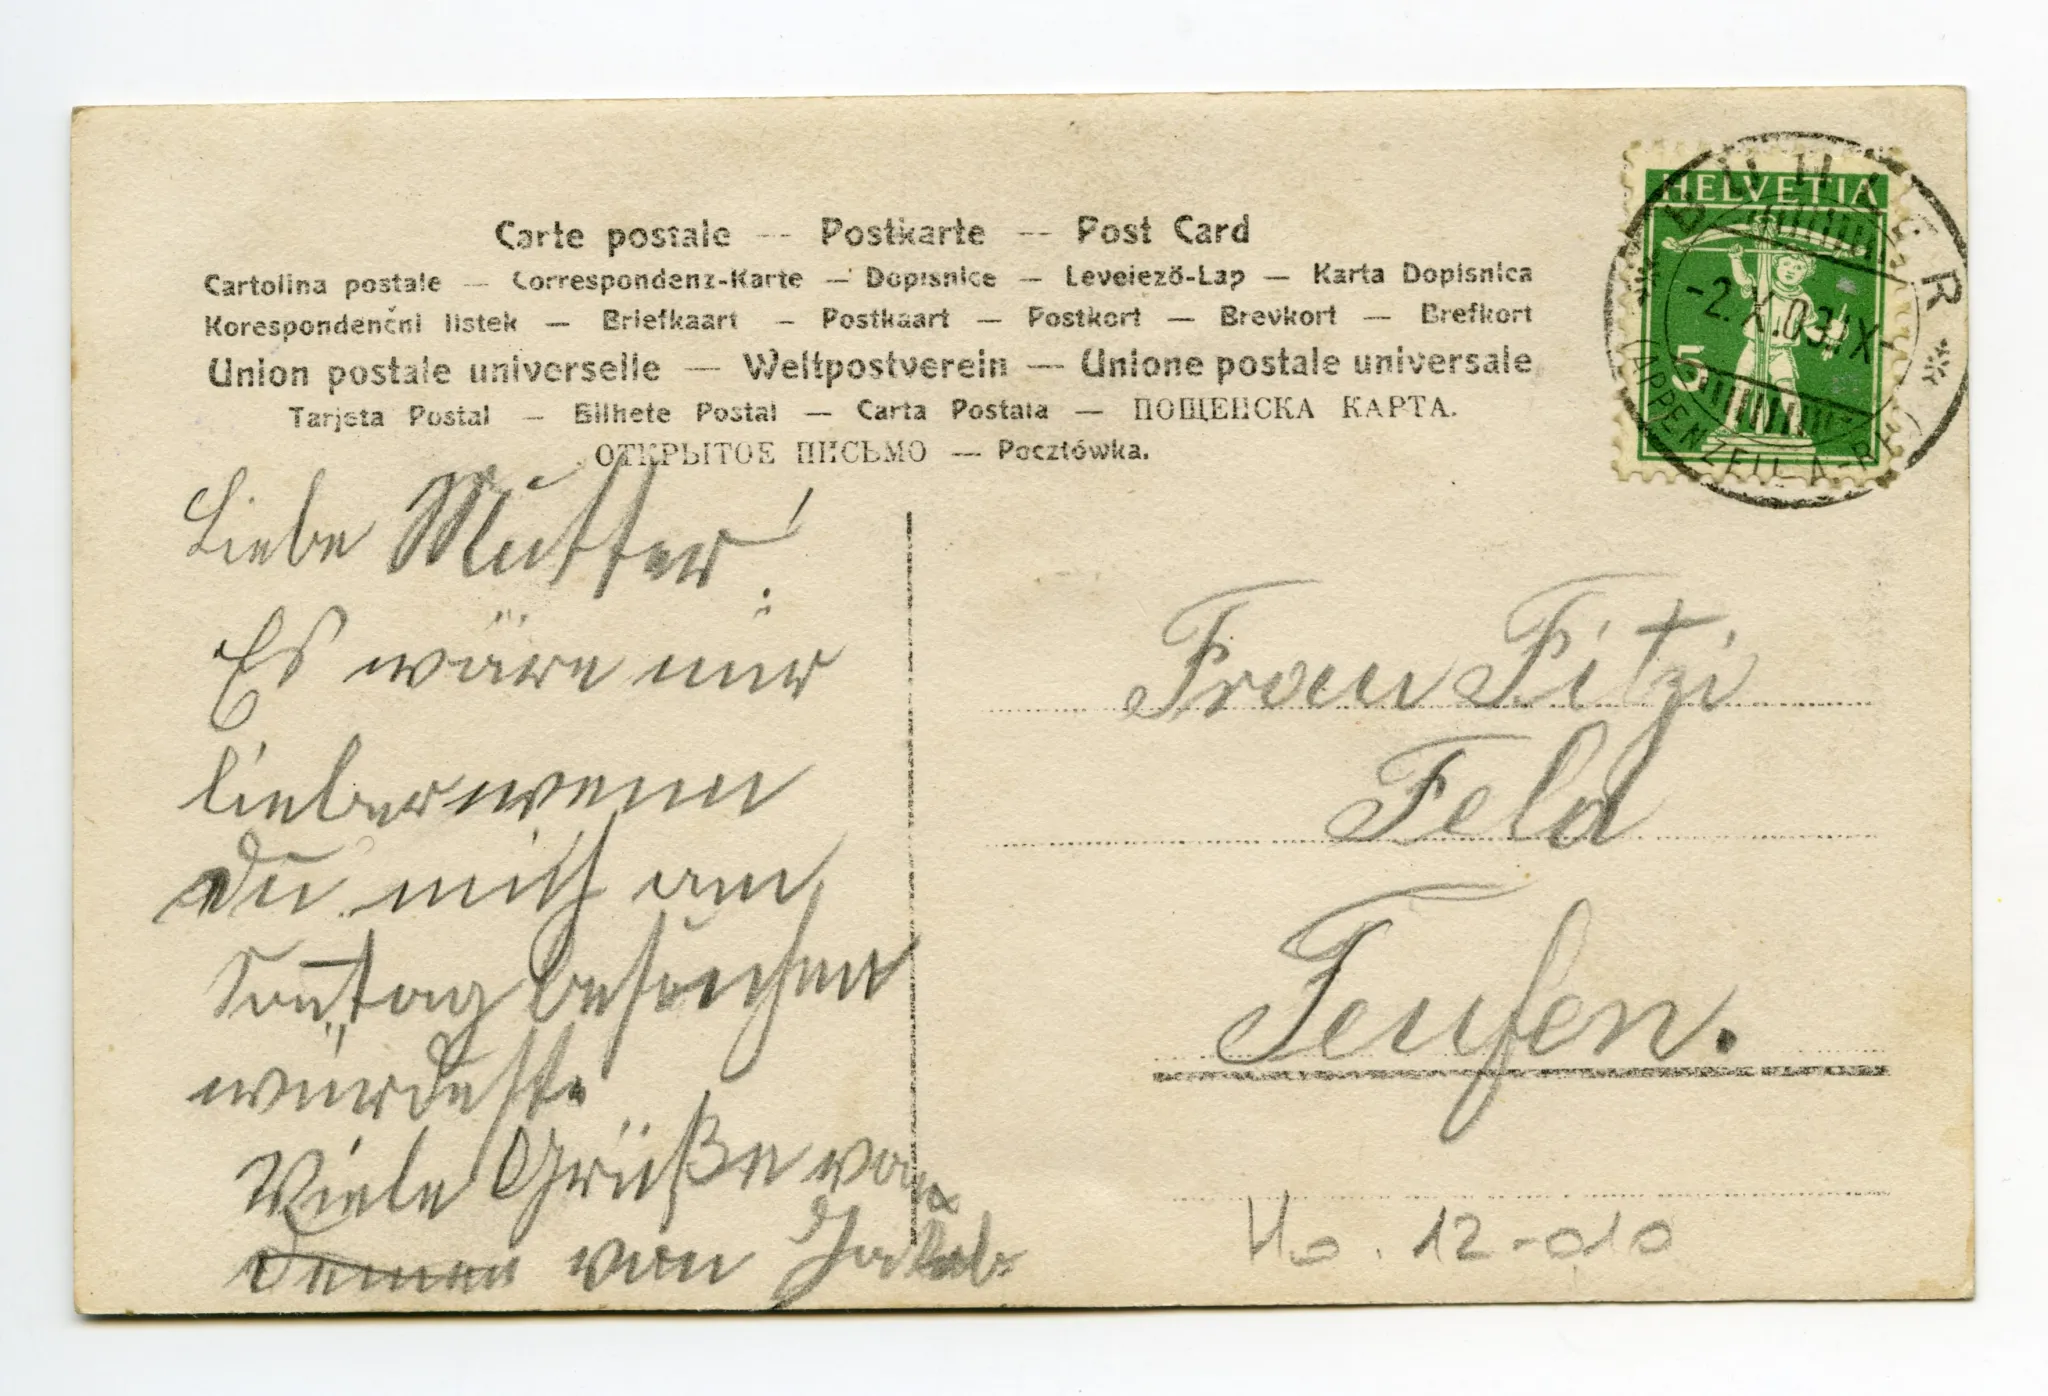 Carte postale -- Postkarte -- Post Card
Cartolina postale — Correspondenz-Karte — Dopisnice — Levelező-Lap — Karta Dopisnica
Korespondenčni listek — Briefkaart — Postkaart — Postkort — Brevkort — Brefkort
Union postale universelle — Weltpostverein — Unione postale universale
Tarjeta Postal — Bilhete Postal — Carta Postala — ПОЩЕНСКА КАРТА.
ОТКРЫТОЕ ПИСЬМО — Pocztówka.
HELVETIA
5
BÜHLER
-2.X.09
(APPENZELL A-RH)
Liebe Mutter!
Es wäre mir
lieber wenn
Du mich am
Sontag besuchen
würdest.
Viele Grüße von
von Jakob
Frau Fitzi
Feld
Teufen.
Ho. 12-010